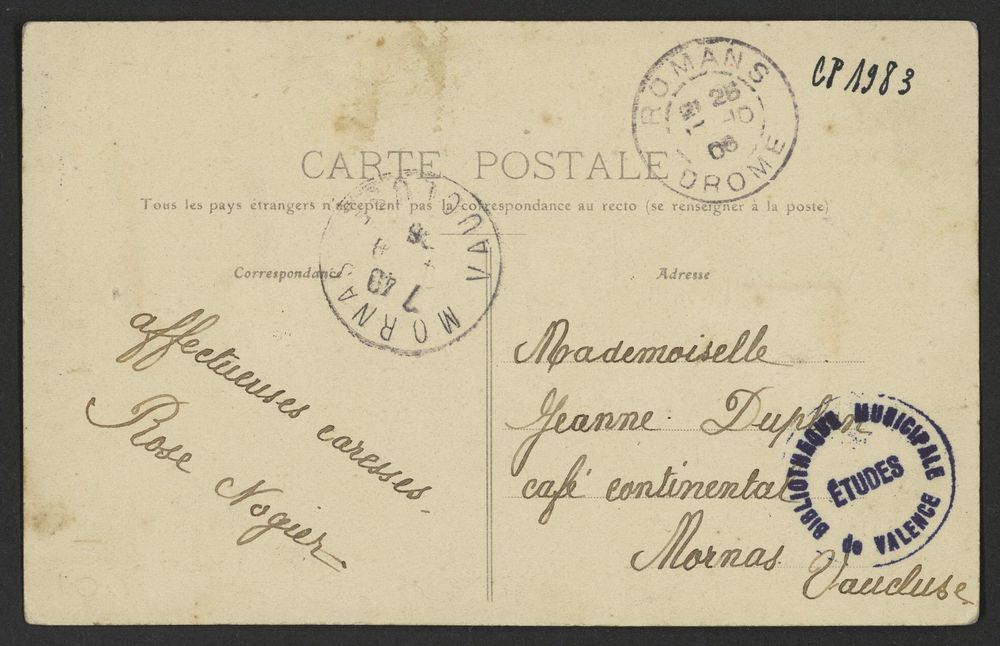 CP 1983
ROMANS
25 -10
06
DROME
CARTE POSTALE
Tous les pays étrangers n'acceptent pas la correspondance au recto (se renseigner à la poste)
VAUCLUSE
1 40
MORNAS
Correspondance
affectueuses caresses.
Rose Nogier
Adresse
Mademoiselle
Jeanne
café continental
Mornas
Vaucluse
BIBLIOTHEQUE MUNICIPALE
ÉTUDES
de VALENCE